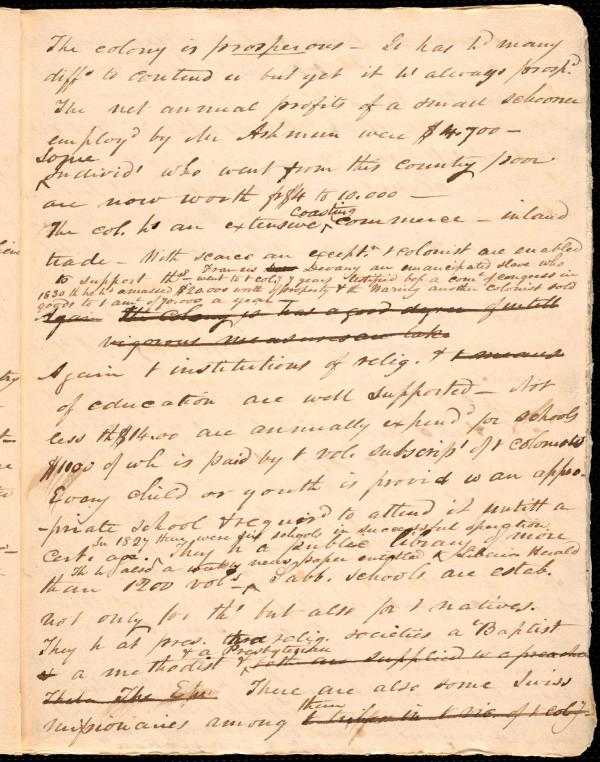 The colony is prosperous - It has hd many
diffs to contend w but yet it hs always prospd.
The net annual profits of a small schooner
employd by Mr Ashmun were $4.700 -
Some
Individs who went from this country poor
are now worth fr $4 to 10.000 -
coasting
The col. hs an extensive commerce - inland
trade - With scarce an exceptn t colonist are enabled
to support ths. Francis Devany an emancipated slave who
went to t coly 7 years testified bef a come of congress in
1830 th he hs amassed $20.000 worth of property & th Waring another colonist sold
goods to t amt of 70.000 a year
Again the colony is has a good degree of until
vigorous measures are take
Again t institutions of relig. & t means
of education are well supported - Not
less th $1400 are annually expend for schools
$1100 of wh is paid by t vol. subscrips of t colonists
Every child or youth is provid w an appro-
-priate school & requird to attend it until a
In 1827 they were six schools in successful operation
cert. age. They h a public library of more
Th h also a weekly news paper entitled t Liberia Herald
than 1200 vols - Sabb. schools are estab.
not only for ths but also for t natives.
They h at pres. three relig. societies a Baptist
& a Presbyterian
& a methodist & both are supplied w a preacher
The Epis There are also some Swiss
them
missionaries among t tribes in t vic. of t coly -